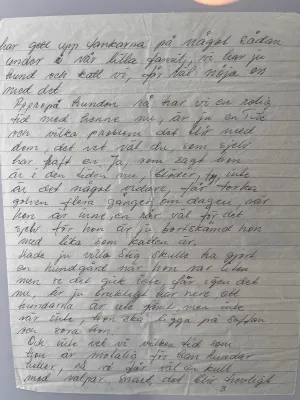 har gett upp tankarna på något sådan
under i vår lilla family, vi har ju
hund och katt vi, får väl nöja oss
med det.
Apropå hunden så har vi en rolig
tid med henne nu, är ju en
och vilka problem det blir med
dom, det vet väl du, som själv
har haft en. Ja, som sagt hon
är i den tiden nu, blöder, inte
är det något vidare, får torka
golven flera gånger om dagen, när
hon är inne, en sån väl för det
själv för hon är ju bortskämd hon
med lika som katten är.
Hade ju Stig skulle ha gjort
en hundgård när hon var liten
men se det gick inte, får igen det
nu, är ju brukligt här nere att
hundarna är ute jämt, men inte
vår inte, hon ska ligga på soffan
och vara hon.
Och inte vet vi vilken tid som
hon är mottaglig för han hundar
heller, så vi får väl en kull
med valpar snart, det blir trevligt
3